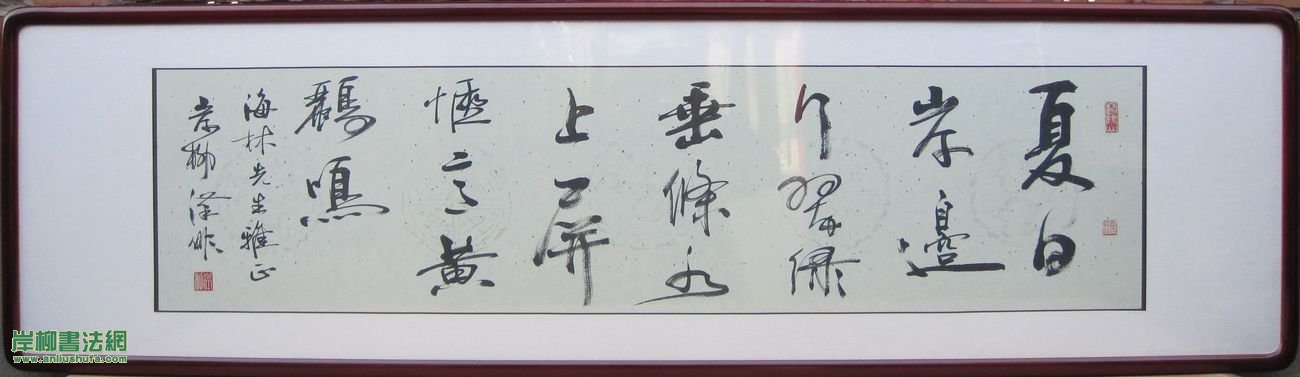 夏日
岸邊
行翠綠
垂條水
上屏
愜意黃
鸝鳴
海林先生雅正
岸柳 作
岸柳書法網
www.anliushufa.com